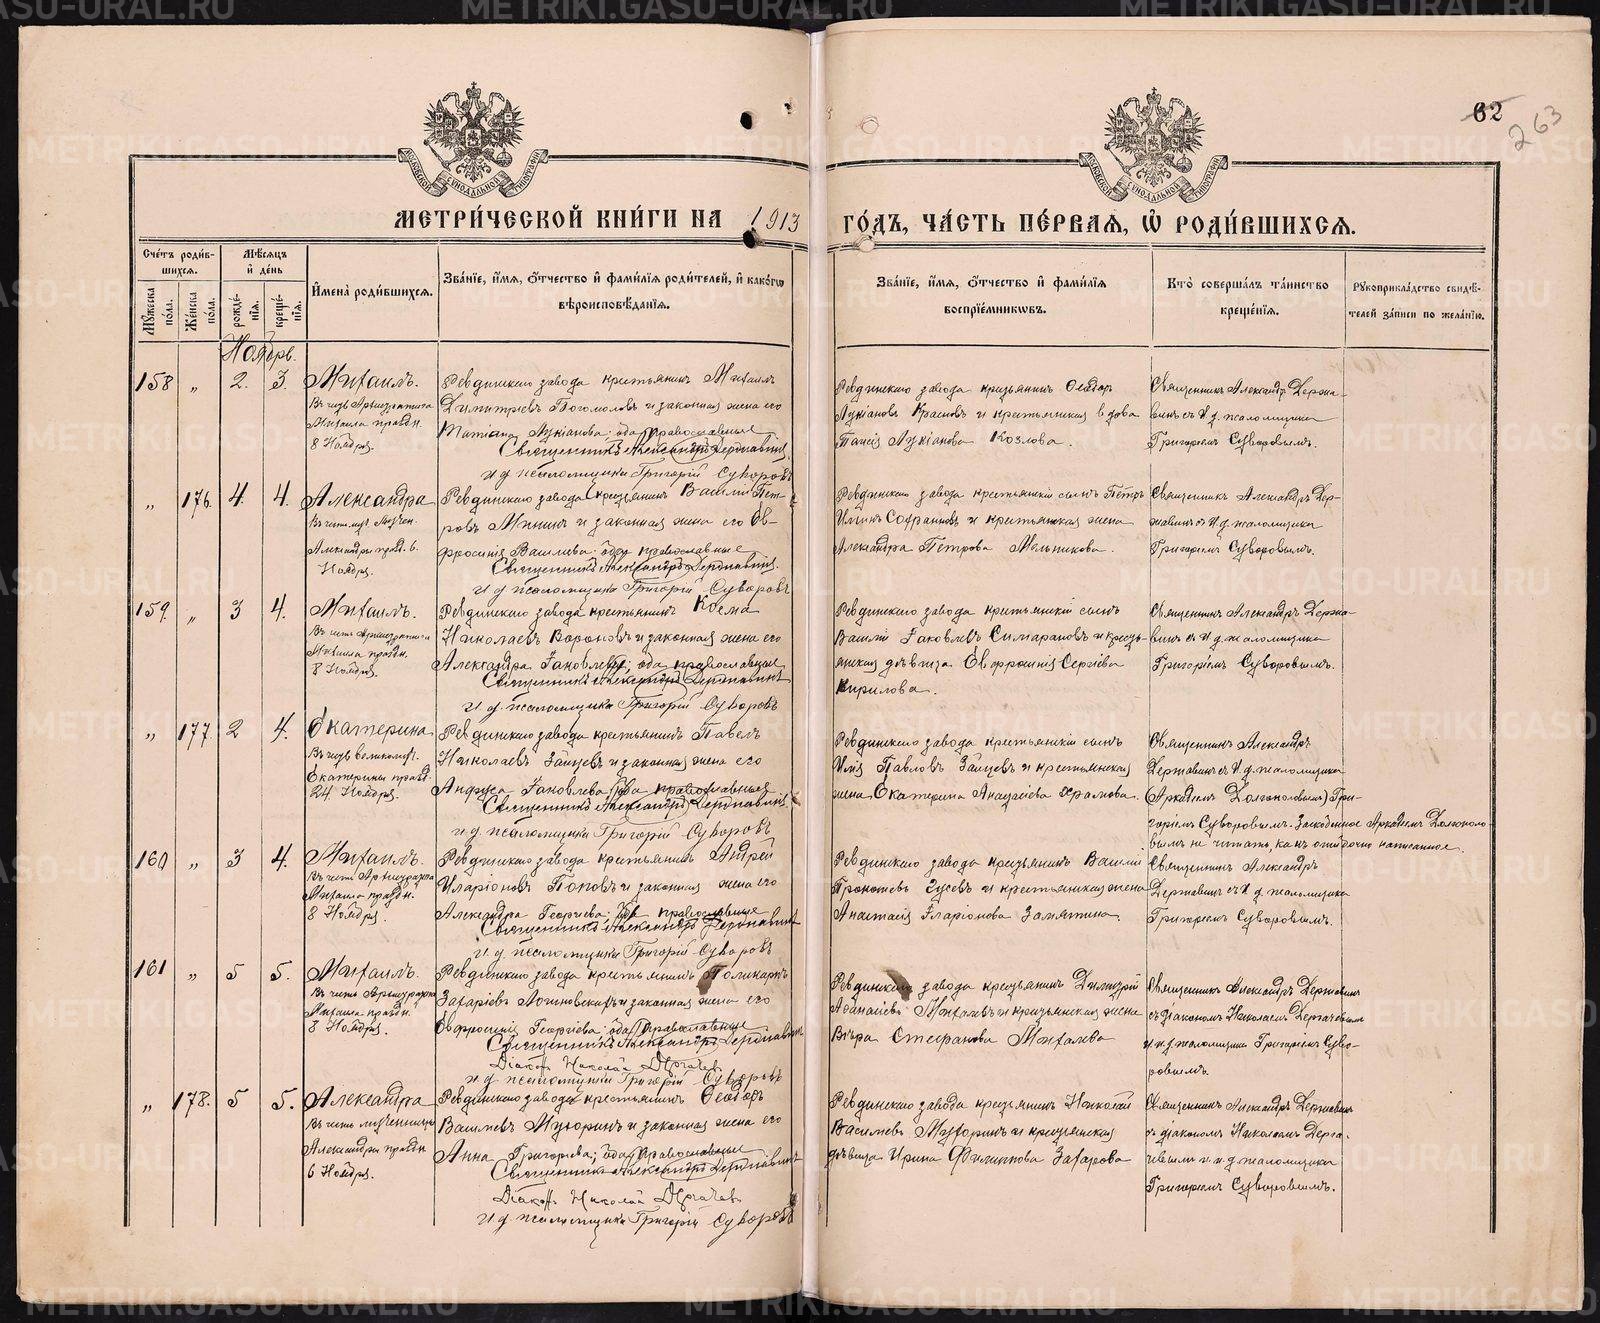 METRIKI.GASO-URAL.RU
62
263
МОСКОВСКОЙ СѴНОДАЛЬНОЙ ТИПОГРАФІИ
МОСКОВСКОЙ СѴНОДАЛЬНОЙ ТИПОГРАФІИ
МЕТРИ́ЧЕСКОЙ КНИ́ГИ НА 1913 ГО́ДЪ, ЧА́СТЬ ПЕ́РВАЯ, Ѽ РОДИ́ВШИХСЯ.
Сче́тъ роди́в-
шихся.
Мѣ́сяцъ
и҆ де́нь
Мꙋ́жеска по́ла.
Же́нска по́ла.
рожде́нїя.
креще́нїя.
И҆мена̀ роди́вшихся.
Зва́нїе, и҆́мя, ѻ҆́тчество и҆ фами́лїя роди́телей, и҆ како́гѡ
вѣроисповѣ́данїя.
Зва́нїе, и҆́мя, ѻ҆́тчество и҆ фами́лїя
воспрїе́мникѡвъ.
Кто̀ соверша́лъ та́инство
креще́нїя.
Рꙋкоприкла́дство свидѣ́-
телей за́писи по жела́нїю.
Ноябрь.
158 „ 2. 3. Михаилъ.
Въ честь Архистратига
Михаила праздн.
8 Ноября.
Ревдинскаго завода крестьянинъ Михаилъ
Димитріевъ Богомоловъ и законная жена его
Татіана Лукіанова; оба православные
Священникъ Александръ Державинъ
и. д. псаломщика Григорій Суворовъ
Ревдинскаго завода крестьянинъ Ѳеодоръ
Лукіановъ Красновъ и крестьянская вдова
Таисія Лукіанова Козлова.
Священникъ Александръ Держа-
винъ съ и. д. псаломщика
Григоріемъ Суворовымъ.
„ 176. 4. 4. Александра
Въ честь муч.
Александры празд. 6.
Ноября.
Ревдинскаго завода крестьянинъ Василій Пет-
ровъ Мининъ и законная жена его Ев-
фросинія Васильева; оба православные
Священникъ Александръ Державинъ.
и. д. псаломщика Григорій Суворовъ
Ревдинскаго завода крестьянскій сынъ Петръ
и крестьянская жена
Александра Петрова Мельникова.
Священникъ Александръ Дер-
жавинъ съ и. д. псаломщика
Григоріемъ Суворовымъ.
159. „ 3 4. Михаилъ.
Въ честь Архистратига
Михаила праздн.
8 Ноября.
Ревдинскаго завода крестьянинъ Косма
Николаевъ Вороновъ и законная жена его
Александра Іаковлева; оба православные
Священникъ Александръ Державинъ
и. д. псаломщика Григорій Суворовъ
Ревдинскаго завода крестьянскій сынъ
Василій Іаковлевъ и кресть-
янская дѣвица Евфросинія Сергіева
Кирилова.
Священникъ Александръ Держа-
винъ съ и. д. псаломщика
Григоріемъ Суворовымъ.
„ 177. 2 4. Екатерина
Въ честь великомуч.
Екатерины празд.
24 Ноября.
Ревдинскаго завода крестьянинъ Павелъ
Николаевъ Зайцевъ и законная жена его
Іаковлева; оба православные
Священникъ Александръ Державинъ.
и. д. псаломщика Григорій Суворовъ
Ревдинскаго завода крестьянскій сынъ
Илія Павловъ Зайцевъ и крестьянская
жена Екатерина Храмова.
Священникъ Александръ
Державинъ съ и. д. псаломщика
(Аркадіемъ Долгополовымъ) Гри-
горіемъ Суворовымъ. Заскобленное Аркадіемъ Долгополо-
вымъ не читать, какъ ошибочно написанное.
160 „ 3 4. Михаилъ.
Въ честь Архистратига
Михаила праздн.
8 Ноября.
Ревдинскаго завода крестьянинъ Андрей
Иларіоновъ Поповъ и законная жена его
Александра Георгіева; оба православные
Священникъ Александръ Державинъ
и. д. псаломщика Григорій Суворовъ
Ревдинскаго завода крестьянинъ Василій
Прокопьевъ Гусевъ и крестьянская жена
Анастасія Иларіонова Замятина.
Священникъ Александръ
Державинъ съ и. д. псаломщика
Григоріемъ Суворовымъ.
161 „ 5 5. Михаилъ.
Въ честь Архистратига
Михаила праздн.
8 Ноября.
Ревдинскаго завода крестьянинъ Поликарпъ
Захаріевъ Логиновскихъ и законная жена его
Евфросинія Георгіева; оба православные
Священникъ Александръ Державинъ
Діаконъ Николай Дергачевъ
и. д. псаломщика Григорій Суворовъ
Ревдинскаго завода крестьянинъ Димитрій
Аѳанасіевъ Михалевъ и крестьянская жена
Вѣра Стефанова Михалева
Священникъ Александръ Державинъ
съ діакономъ Николаемъ Дергачевымъ
и и. д. псаломщика Григоріемъ Суво-
ровымъ.
„ 178. 5 5. Александра
Въ честь мученицы
Александры праздн.
6 Ноября.
Ревдинскаго завода крестьянинъ Ѳеодоръ
Васильевъ Мухоринъ и законная жена его
Анна Григорьева; оба православные
Священникъ Александръ Державинъ
Діаконъ Николай Дергачевъ
и. д. псаломщика Григорій Суворовъ
Ревдинскаго завода крестьянинъ Николай
Васильевъ Мухоринъ и крестьянская
дѣвица Ирина Филиппова Захарова
Священникъ Александръ Державинъ
съ діакономъ Николаемъ Дерга-
чевымъ и и. д. псаломщика
Григоріемъ Суворовымъ.